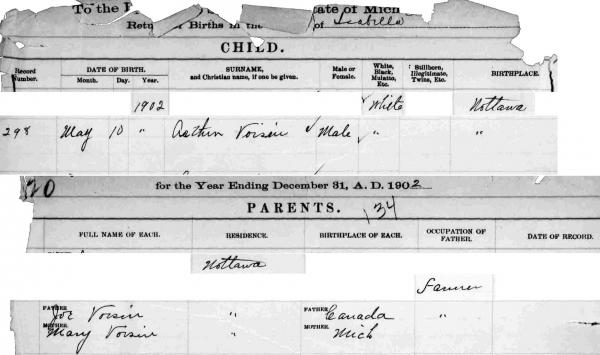 To the ate of Mich
Return of Births in the of Isabella
CHILD.
Record Number.
DATE OF BIRTH.
Month. Day. Year.
SURNAME, and Christian name, if one be given.
Male or Female.
White, Black, Mulatto, Etc.
Stillborn, Illegitimate, Twins, Etc.
BIRTHPLACE.
1902 White Nottawa
298 May 10 " Arthur Voisin Male " "
20 for the Year Ending December 31, A. D. 1902
PARENTS. 134
FULL NAME OF EACH. RESIDENCE. BIRTHPLACE OF EACH. OCCUPATION OF FATHER. DATE OF RECORD.
Nottawa
Farmer
FATHER Joe Voisin " FATHER Canada "
MOTHER Mary Voisin " MOTHER. Mich